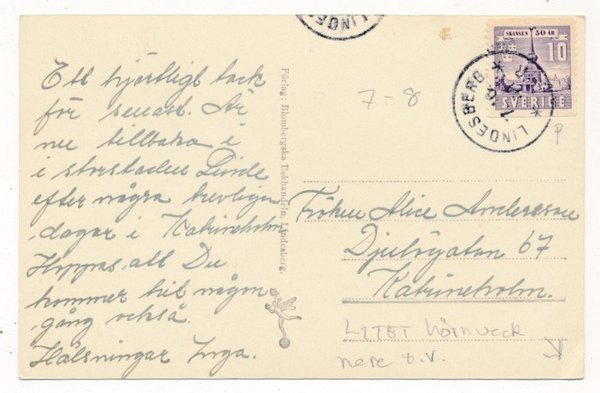 Ett hjärtligt tack
för senast. Är
nu tillbaka i
i storstaden Linde
efter några trevliga
dagar i Katrineholm
Hoppas att Du
kommer hit någon
gång också.
Hälsningar Inga.
Förlag: Blombergska Bokhandeln, Lindesberg.
LINDES
SKANSEN 50 ÅR
10
SVERIGE
LINDESBERG
7-8
P
Fröken Alice Andersson
Djulögatan 67
Katrineholm.
LITET hörnveck
nere o.V.